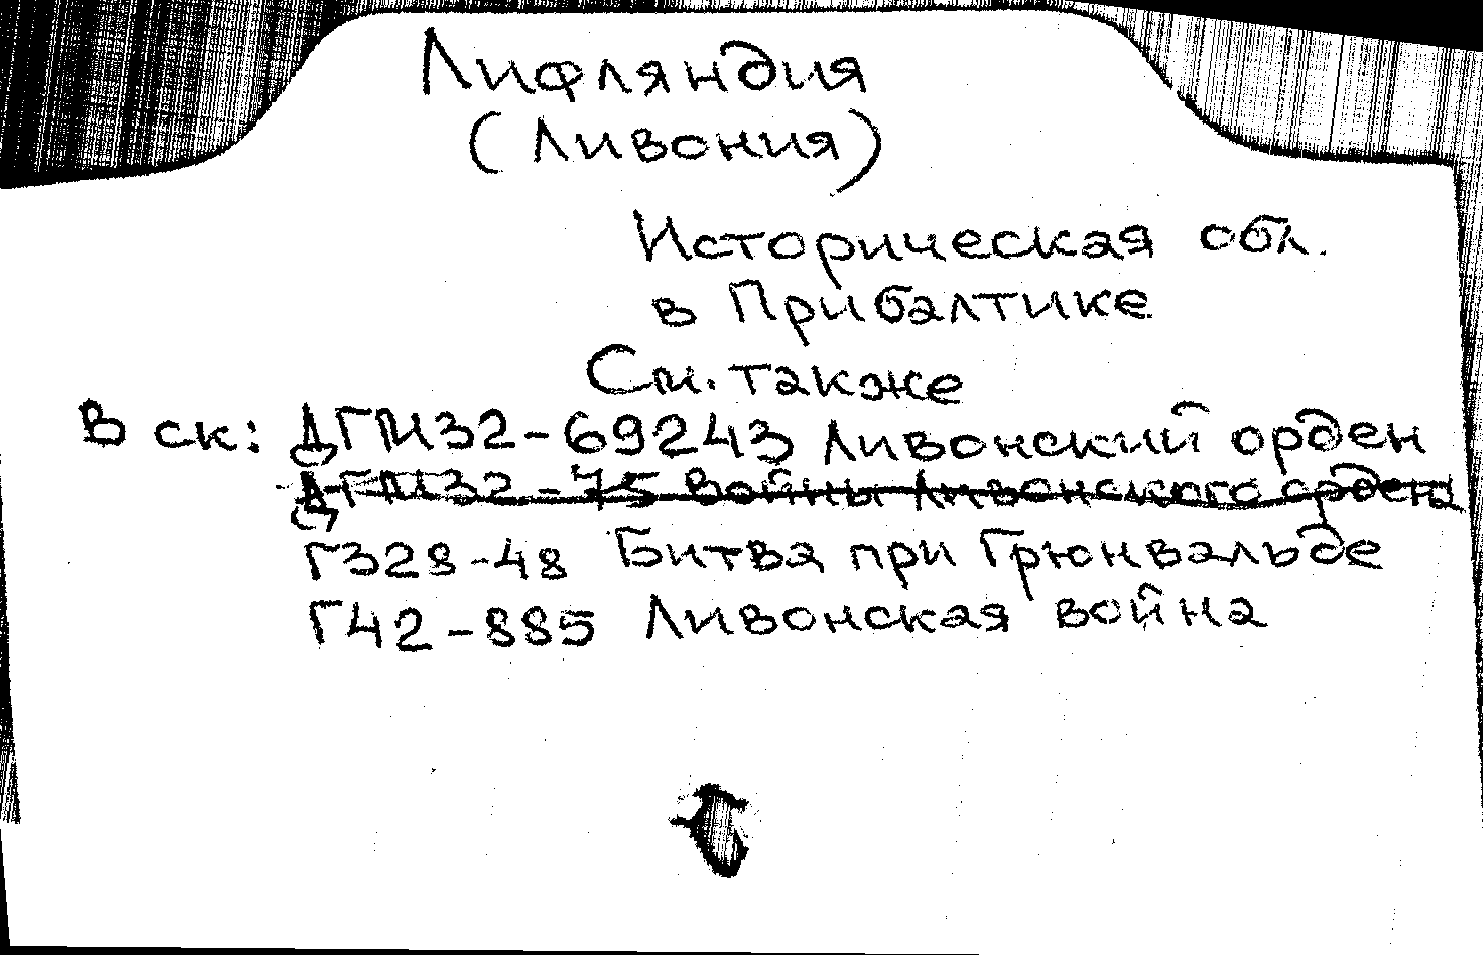 Лифляндия
(Ливония)
Историческая обл.
в Прибалтике
См. также
В ск: ДГМ32-69243 Ливонский орден
ДГМ32-75 Войны Ливонского ордена
Г328-48 Битва при Грюнвальде
Г42-885 Ливонская война